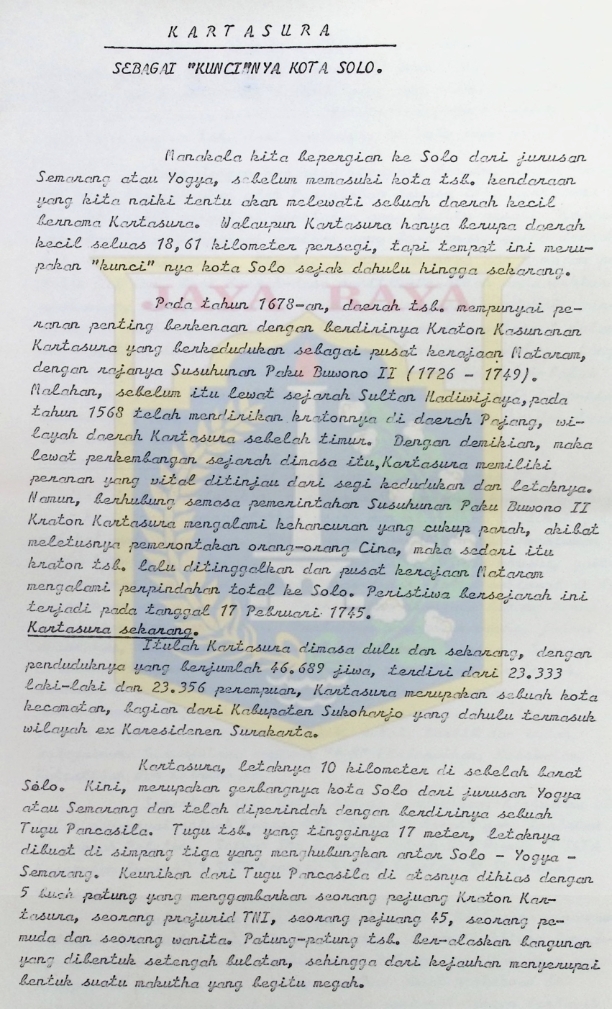 KARTASURA
SEBAGAI "KUNCI"NYA KOTA SOLO.
Manakala kita bepergian ke Solo dari jurusan
Semarang atau Yogya, sebelum memasuki kota tsb. kendaraan
yang kita naiki tentu akan melewati sebuah daerah kecil
bernama Kartasura. Walaupun Kartasura hanya berupa daerah
kecil seluas 18,61 kilometer persegi, tapi tempat ini meru-
pakan "kunci" nya kota Solo sejak dahulu hingga sekarang.
JAYA RAYA
Pada tahun 1678-an, daerah tsb. mempunyai pe-
ranan penting berkenaan dengan berdirinya Kraton Kasunanan
Kartasura yang berkedudukan sebagai pusat kerajaan Mataram,
dengan rajanya Susuhunan Paku Buwono II (1726 - 1749).
Malahan, sebelum itu lewat sejarah Sultan Hadiwijaya,pada
tahun 1568 telah mendirikan kratonnya di daerah Pajang, wi-
layah daerah Kartasura sebelah timur. Dengan demikian, maka
lewat perkembangan sejarah dimasa itu,Kartasura memiliki
peranan yang vital ditinjau dari segi kedudukan dan letaknya.
Namun, berhubung semasa pemerintahan Susuhunan Paku Buwono II
Kraton Kartasura mengalami kehancuran yang cukup parah, akibat
meletusnya pemerontakan orang-orang Cina, maka sedari itu
kraton tsb. lalu ditinggalkan dan pusat kerajaan Mataram
mengalami perpindahan total ke Solo. Peristiwa bersejarah ini
terjadi pada tanggal 17 Pebruari 1745.
Kartasura sekarang.
Itulah Kartasura dimasa dulu dan sekarang, dengan
penduduknya yang berjumlah 46.689 jiwa, terdiri dari 23.333
laki-laki dan 23.356 perempuan, Kartasura merupakan sebuah kota
kecamatan, bagian dari Kabupaten Sukoharjo yang dahulu termasuk
wilayah ex Karesidenen Surakarta.
Kartasura, letaknya 10 kilometer di sebelah barat
Solo. Kini, merupakan gerbangnya kota Solo dari jurusan Yogya
atau Semarang dan telah diperindah dengan berdirinya sebuah
Tugu Pancasila. Tugu tsb. yang tingginya 17 meter, letaknya
dibuat di simpang tiga yang menghubungkan antar Solo - Yogya -
Semarang. Keunikan dari Tugu Pancasila di atasnya dihias dengan
5 buah patung yang menggambarkan seorang pejuang Kraton Kar-
tasura, seorang prajurid TNI, seorang pejuang 45, seorang pe-
muda dan seorang wanita. Patung-patung tsb. ber-alaskan bangunan
yang dibentuk setengah bulatan, sehingga dari kejauhan menyerupai
bentuk suatu makutha yang begitu megah.